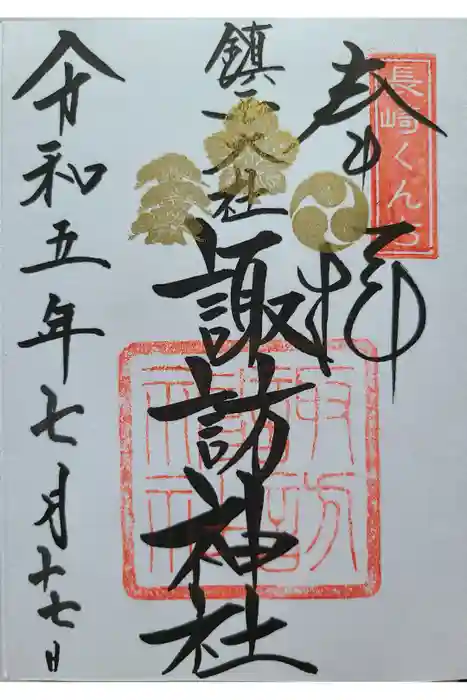 長崎くんち
奉拝
鎮西大社
諏訪神社
令和五年七月十七日
諏訪
神社